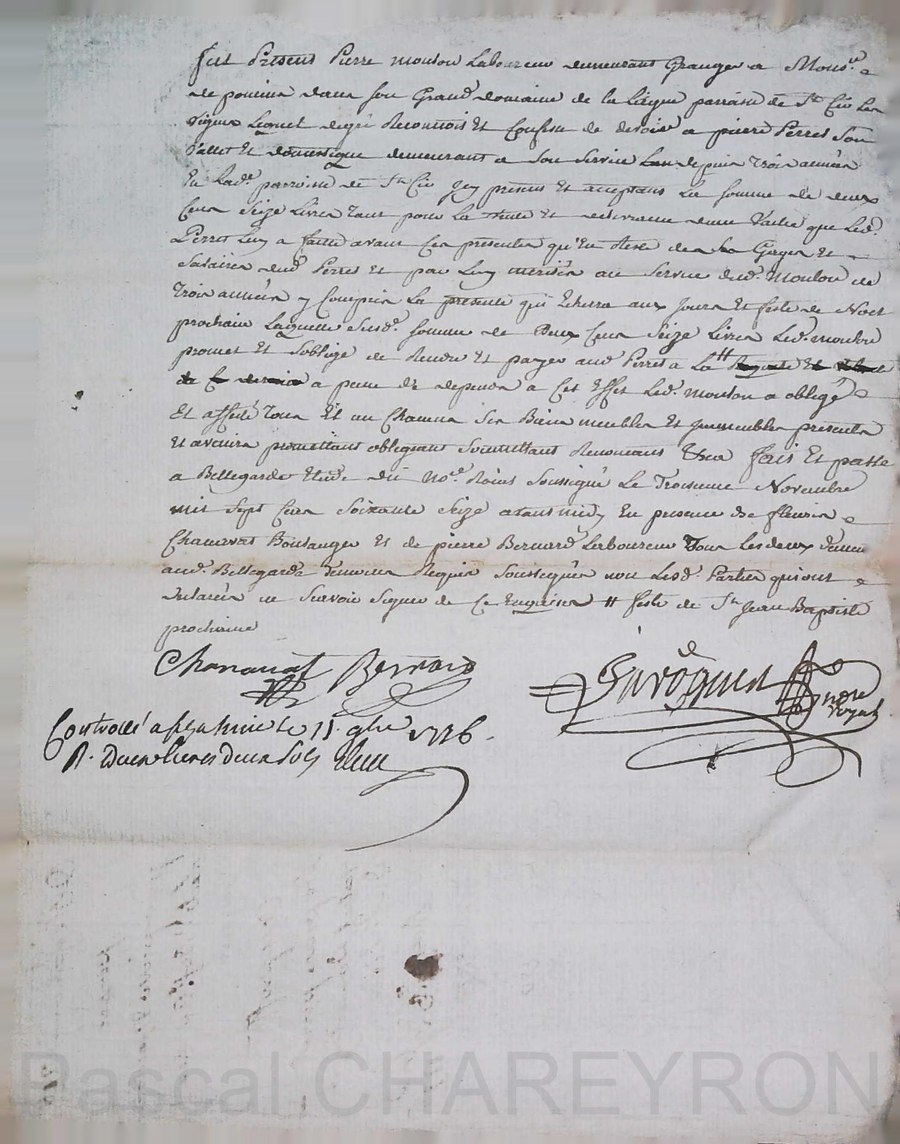 fut Present Pierre mouton Laboureur demeurant Granger a Mons.r
de poncins dans son Grand domaine de la Liegue parroisse de St Cir Les
vignes Lequel de gré Reconnois Et Confesse de devoir a pierre Perret Son
Vallet Et domestique demeurant a Son Service depuis trois années
En Lad. parroisse de St Cir Icy present Et acceptant La somme de deux
Cens Seize Livres tant pour La Vente Et delivrance dune Vache que Led.
Perret Luy a faitte avant Ces presentes qu'En Reste de Gages Et
Salaires dud. Perret Et par Luy merités au Service dud. Mouton de
Trois années y Compris La presente qui Echerra aux Jours Et feste de Noel
prochain Laquelle Susd. somme de Deux Cens Seize Livres Led. mouton
promet Et Soblige de Rendre Et payer aud. Perret a La #
a peine de depens a Cet Effet Led. mouton a obligé
Et affecté Tous Et un Chacun Ses Biens meubles Et immeubles presents
Et avenirs promettant obligeant Soumettant Renonceant fait Et passé
a Bellegarde Etude du no.re Roial Soussigné Le Troisieme Novembre
mil Sept Cens Soixante Seize avant midy En presence de fleuris
Chanavat Boulanger Et de pierre Bernard Laboureur Tous Les deux demeu
aud. Bellegarde Temoins Requis Soussignés non Lesd. Parties qui ont
declarés ne Scavoir Signer de Ce Enquises # feste de St Jean Baptiste
prochaine
Chanavat Bernard
nore royal
Controllé a le 11 9bre 1776.
R. deux Sols